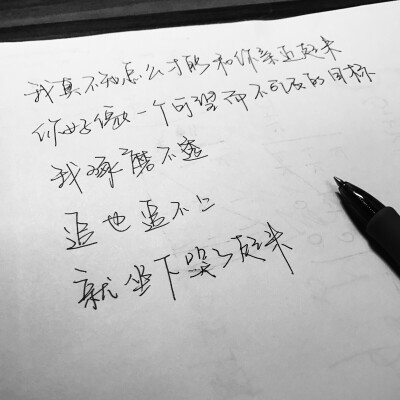 我真不知怎么才能和你亲近起来
你好像一个可望而不可及的目标
我琢磨不透
追也追不上
就坐下哭了起来